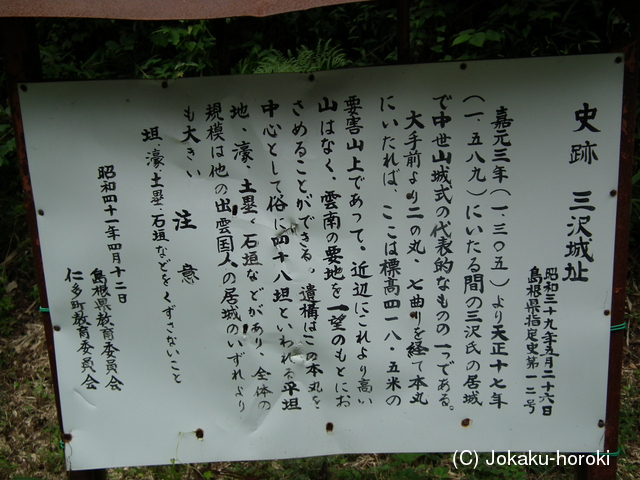 史跡 三沢城址
昭和三十九年五月二十六日
島根県指定史第一二号
嘉元三年(一、三〇五)より天正十七年
(一、五八九)にいたる間の三沢氏の居城
で中世山城式の代表的なものの一つである。
大手前より二の丸、七曲りを経て本丸
にいたれば、ここは標高四一八・五米の
要害山上であって、近辺にこれより高い
山はなく、雲南の要地を一望のもとにお
さめることができる。遺構はこの本丸を
中心として俗に四十八坦といわれる平坦
地、濠、土塁、石垣などがあり、全体の
規模は他の出雲国人の居城のいずれより
も大きい
注意
坦、濠、土塁、石垣などをくずさないこと
昭和四十一年四月十二日
島根県教育委員会
仁多町教育委員会
(C) Jokaku-horoki